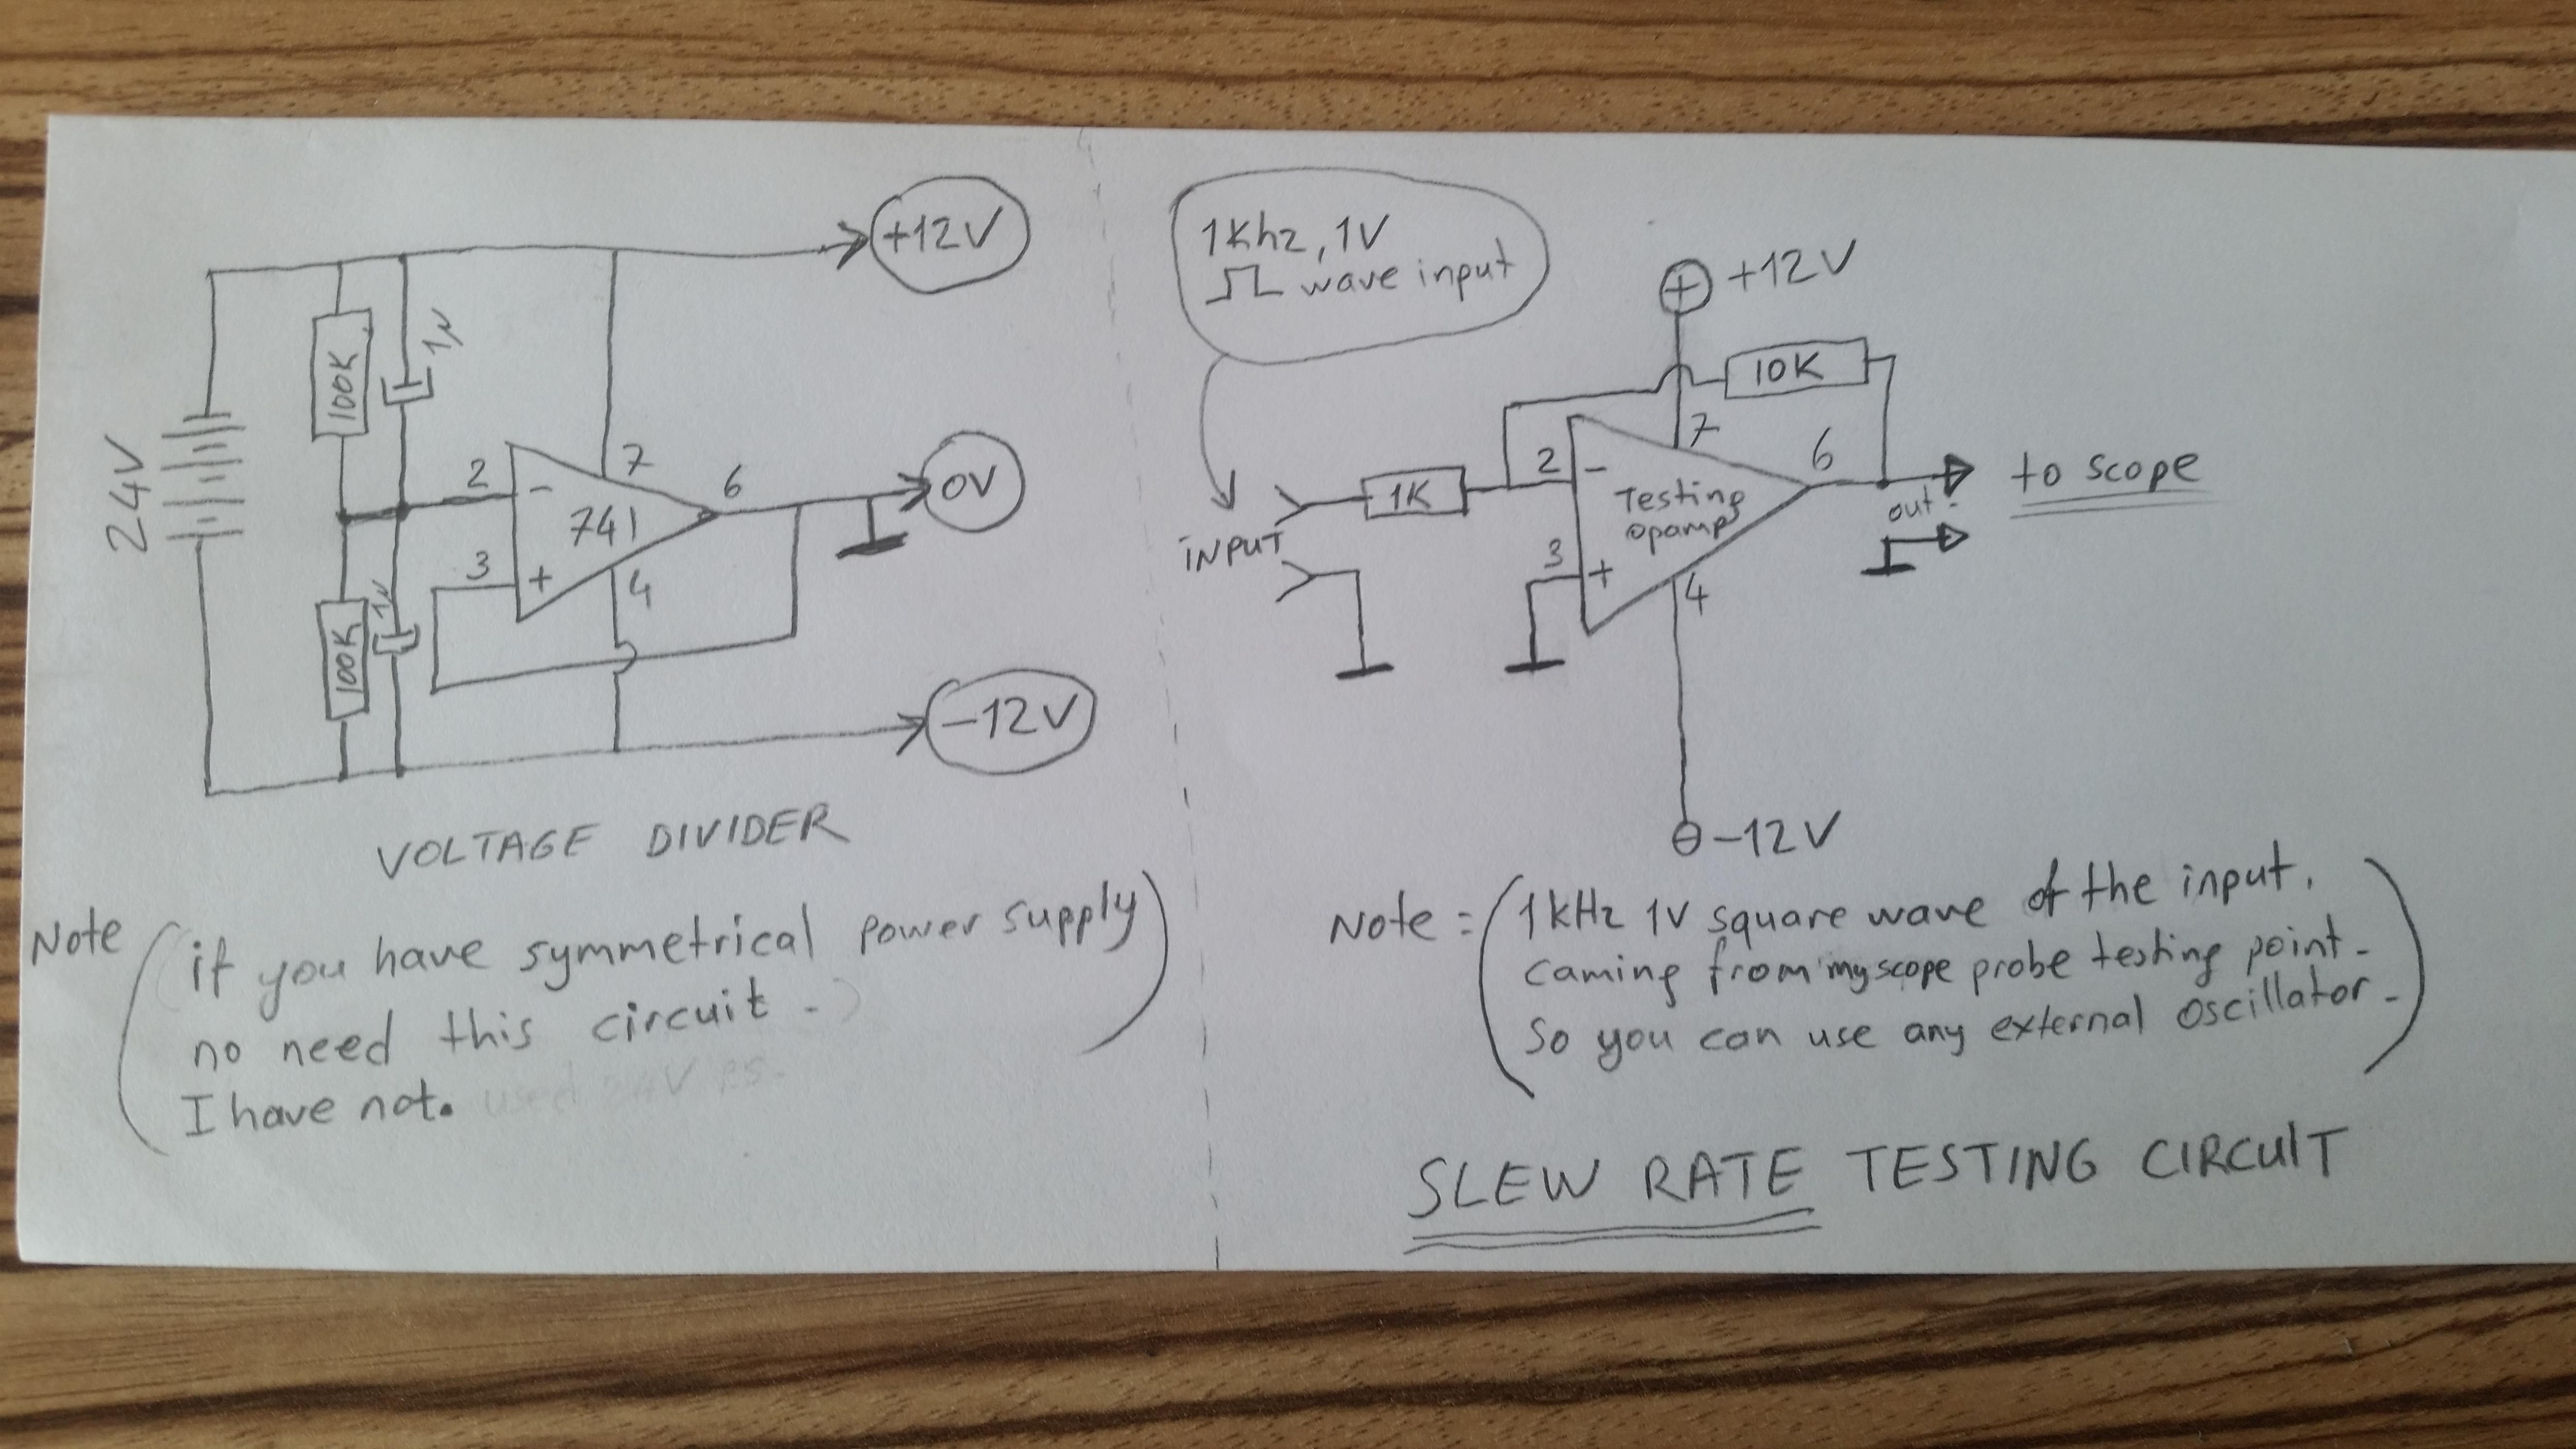 24V
100K
1µ
100K
1µ
2
-
3
+
741
7
4
6
+12V
0V
-12V
VOLTAGE DIVIDER
Note
(if you have symmetrical power supply)
no need this circuit.
I have not. used 24V ps.
1Khz, 1V
wave input
INPUT
1K
2
-
3
+
Testing
opamp
7
4
6
10K
+
+12V
-
-12V
out.
to scope
Note = (1kHz 1V square wave of the input.
caming from my scope probe testing point-
So you can use any external oscillator-)
SLEW RATE TESTING CIRCUIT